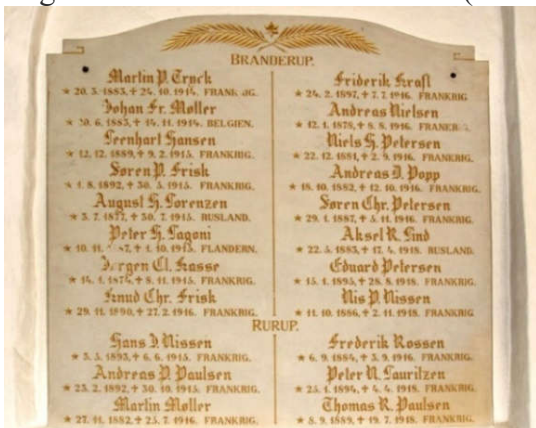 BRANDERUP.
Martin P. Tryck
* 20. 3. 1883, + 24. 10. 1914. FRANKRIG.
Johan Fr. Møller
* 20. 6. 1883, + 14. 11. 1914. BELGIEN.
Leenhart Hansen
* 12. 12. 1889, + 9. 2. 1915. FRANKRIG.
Søren P. Frisk
* 1. 8. 1892, + 30. 5. 1915. FRANKRIG.
August H. Lorenzen
* 3. 7. 1877, + 30. 7. 1915. RUSLAND.
Peter H. Lagoni
* 10. 11. 87, + 1. 10. 1915. FLANDERN.
Jørgen Cl. Hasse
* 14. 1. 1874, + 8. 11. 1915. FRANKRIG.
Knud Chr. Frisk
* 29. 11. 1890, + 27. 2. 1916. FRANKRIG.
Friderik Krafl
* 24. 2. 1897, + 7. 7. 1916. FRANKRIG.
Andreas Nielsen
* 12. 1. 1878, + 8. 8. 1916. FRANKRIG.
Niels H. Petersen
* 22. 12. 1891, + 2. 9. 1916. FRANKRIG.
Andreas D. Popp
* 18. 10. 1882, + 12. 10. 1916. FRANKRIG.
Søren Chr. Petersen
* 29. 1. 1887, + 5. 11. 1916. FRANKRIG.
Aksel R. Lind
* 22. 5. 1883, + 17. 4. 1918. RUSLAND.
Eduard Petersen
* 15. 1. 1895, + 28. 8. 1918. FRANKRIG.
Nis P. Nissen
* 11. 10. 1886, + 2. 11. 1918. FRANKRIG.
RURUP.
Hans J. Nissen
* 5. 5. 1893, + 6. 6. 1915. FRANKRIG.
Andreas P. Paulsen
* 23. 2. 1892, + 30. 10. 1915. FRANKRIG.
Martin Møller
* 27. 11. 1882, + 25. 7. 1916. FRANKRIG.
Frederik Rossen
* 6. 9. 1884, + 3. 9. 1916. FRANKRIG.
Peter N. Lauritzen
* 25. 1. 1894, + 4. 4. 1918. FRANKRIG.
Thomas R. Paulsen
* 8. 9. 1889, + 19. 7. 1918. FRANKRIG.